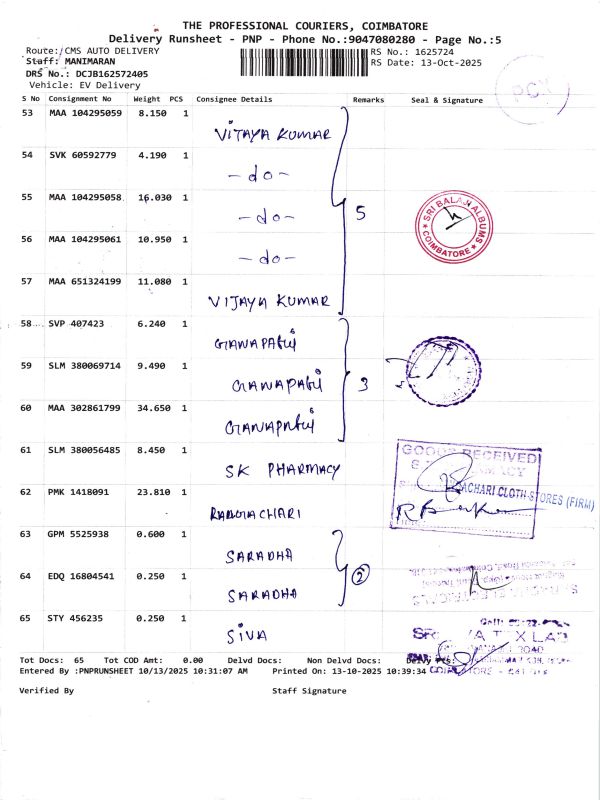 THE PROFESSIONAL COURIERS, COIMBATORE
Delivery Runsheet - PNP - Phone No.:9047080280 - Page No.:5
Route:/CMS AUTO DELIVERY
RS No.: 1625724
Staff: MANIMARAN
RS Date: 13-Oct-2025
DRS No.: DCJB162572405
Vehicle: EV Delivery
PCX
S No Consignment No Weight PCS Consignee Details Remarks Seal & Signature
53 MAA 104295059 8.150 1 VIJAYA KUMAR
54 SVK 60592779 4.190 1 -do-
55 MAA 104295058 16.030 1 -do- 5
SRI BALAJI ALBUMS
COIMBATORE
56 MAA 104295061 10.950 1 -do-
57 MAA 651324199 11.080 1 VIJAYA KUMAR
58 SVP 407423 6.240 1
59 SLM 380069714 9.490 1 3
60 MAA 302861799 34.650 1
61 SLM 380056485 8.450 1 SK PHARMACY
GOODS RECEIVED
62 PMK 1418091 23.810 1 RANGACHARI
ACHARI CLOTH STORES (FIRM)
63 GPM 5525938 0.600 1 SARADHA
64 EDQ 16804541 0.250 1 SARADHA 2
65 STY 456235 0.250 1 SIVA
Tot Docs: 65 Tot COD Amt: 0.00 Delvd Docs: Non Delvd Docs: Delvy Pcs:
Entered By :PNPRUNSHEET 10/13/2025 10:31:07 AM Printed On: 13-10-2025 10:39:34
Verified By Staff Signature